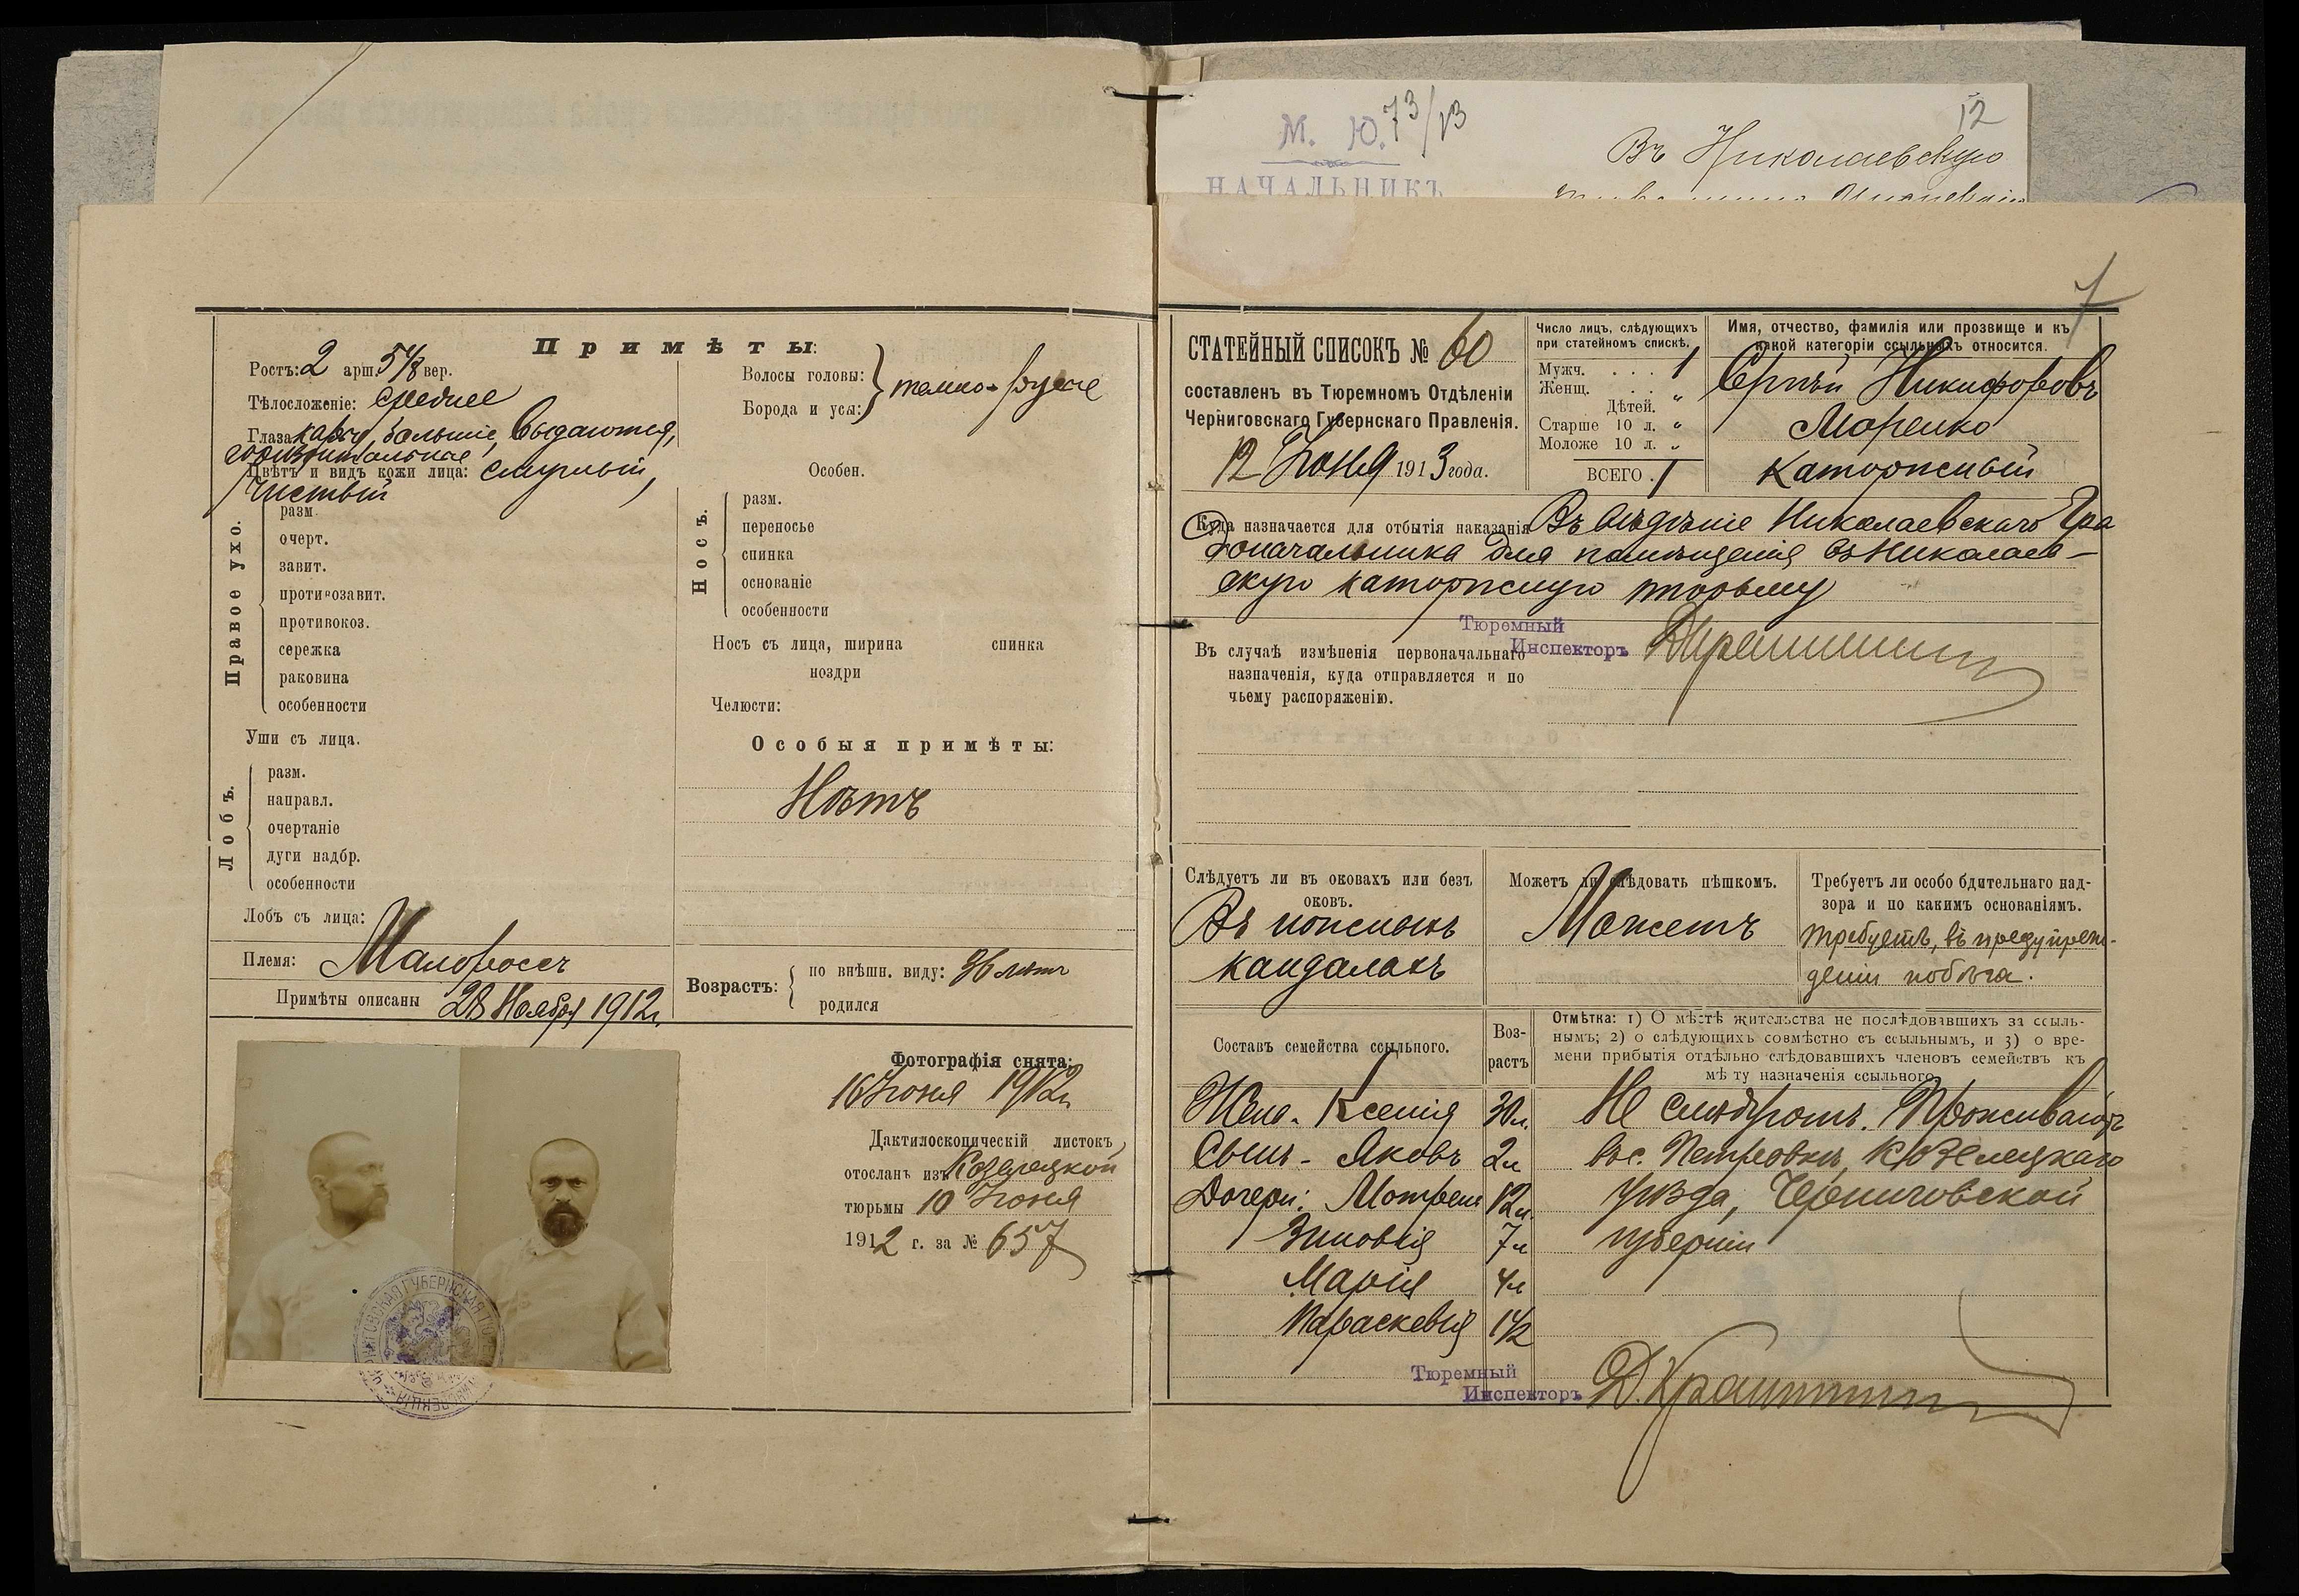 М. Ю. 73/13
НАЧАЛЬНИКЪ
12
Въ Николаевскую
7
Примѣты:
Ростъ: 2 арш. 5 1/8 вер.
Тѣлосложеніе: среднее
Глаза карие, большіе, выдаются,
горизонтальные
Цвѣтъ и видъ кожи лица: смуглый,
чистый
Волосы головы:
Борода и усы:
темно-русые
Особен.
Правое ухо.
разм.
очерт.
завит.
противозавит.
противокоз.
сережка
раковина
особенности
Уши съ лица.
Лобъ.
разм.
направл.
очертаніе
дуги надбр.
особенности
Лобъ съ лица:
Носъ.
разм.
переносье
спинка
основаніе
особенности
Носъ съ лица, ширина спинка
ноздри
Челюсти:
Особыя примѣты:
Нѣтъ
Племя: Малороссъ
Примѣты описаны 28 Ноября 1912 г.
Возрастъ:
по внѣшн. виду: 36 лѣтъ
родился
Фотографія снята:
16 Іюня 1912 г.
Дактилоскопическій листокъ
отосланъ изъ Козелецкой
тюрьмы 10 Іюня
1912 г. за № 657
СТАТЕЙНЫЙ СПИСОКЪ № 60
составленъ въ Тюремномъ Отдѣленіи
Черниговскаго Губернскаго Правленія.
12 Іюня 1913 года.
Число лицъ, слѣдующихъ
при статейномъ спискѣ.
Мужч. . . . 1
Женщ. . . „
Дѣтей.
Старше 10 л. „
Моложе 10 л. „
ВСЕГО . 1
Имя, отчество, фамилія или прозвище и къ
какой категоріи ссыльныхъ относится.
Сергѣй Никифоровъ
Моренко
каторжный
Куда назначается для отбытія наказанія Въ вѣдѣніе Николаевскаго Гра
доначальника для помѣщенія въ Николаев-
скую каторжную тюрьму
Тюремный
Инспекторъ
Въ случаѣ измѣненія первоначальнаго
назначенія, куда отправляется и по
чьему распоряженію.
Слѣдуетъ ли въ оковахъ или безъ
оковъ.
Въ ножныхъ
кандалахъ
Можетъ ли слѣдовать пѣшкомъ.
Можетъ
Требуетъ ли особо бдительнаго над-
зора и по какимъ основаніямъ.
требуетъ, въ предупреж-
деніи побѣга.
Составъ семейства ссыльного.
Воз-
растъ
Отмѣтка: 1) О мѣстѣ жительства не послѣдовавшихъ за ссыль-
нымъ; 2) о слѣдующихъ совмѣстно съ ссыльнымъ, и 3) о вре-
мени прибытія отдѣльно слѣдовавшихъ членовъ семействъ къ
мѣ ту назначенія ссыльного
Жена - Ксенія 30 л. Не слѣдуютъ. Проживаютъ
Сынъ - Яковъ 2 л въ с. Петровкѣ, Козелецкаго
Дочери: Мотрена 12 л. уѣзда, Черниговской
Зиновія 7 л губерніи
Марія 4 л
Параскевія 1 1/2
Тюремный
Инспекторъ Д. Крашенин